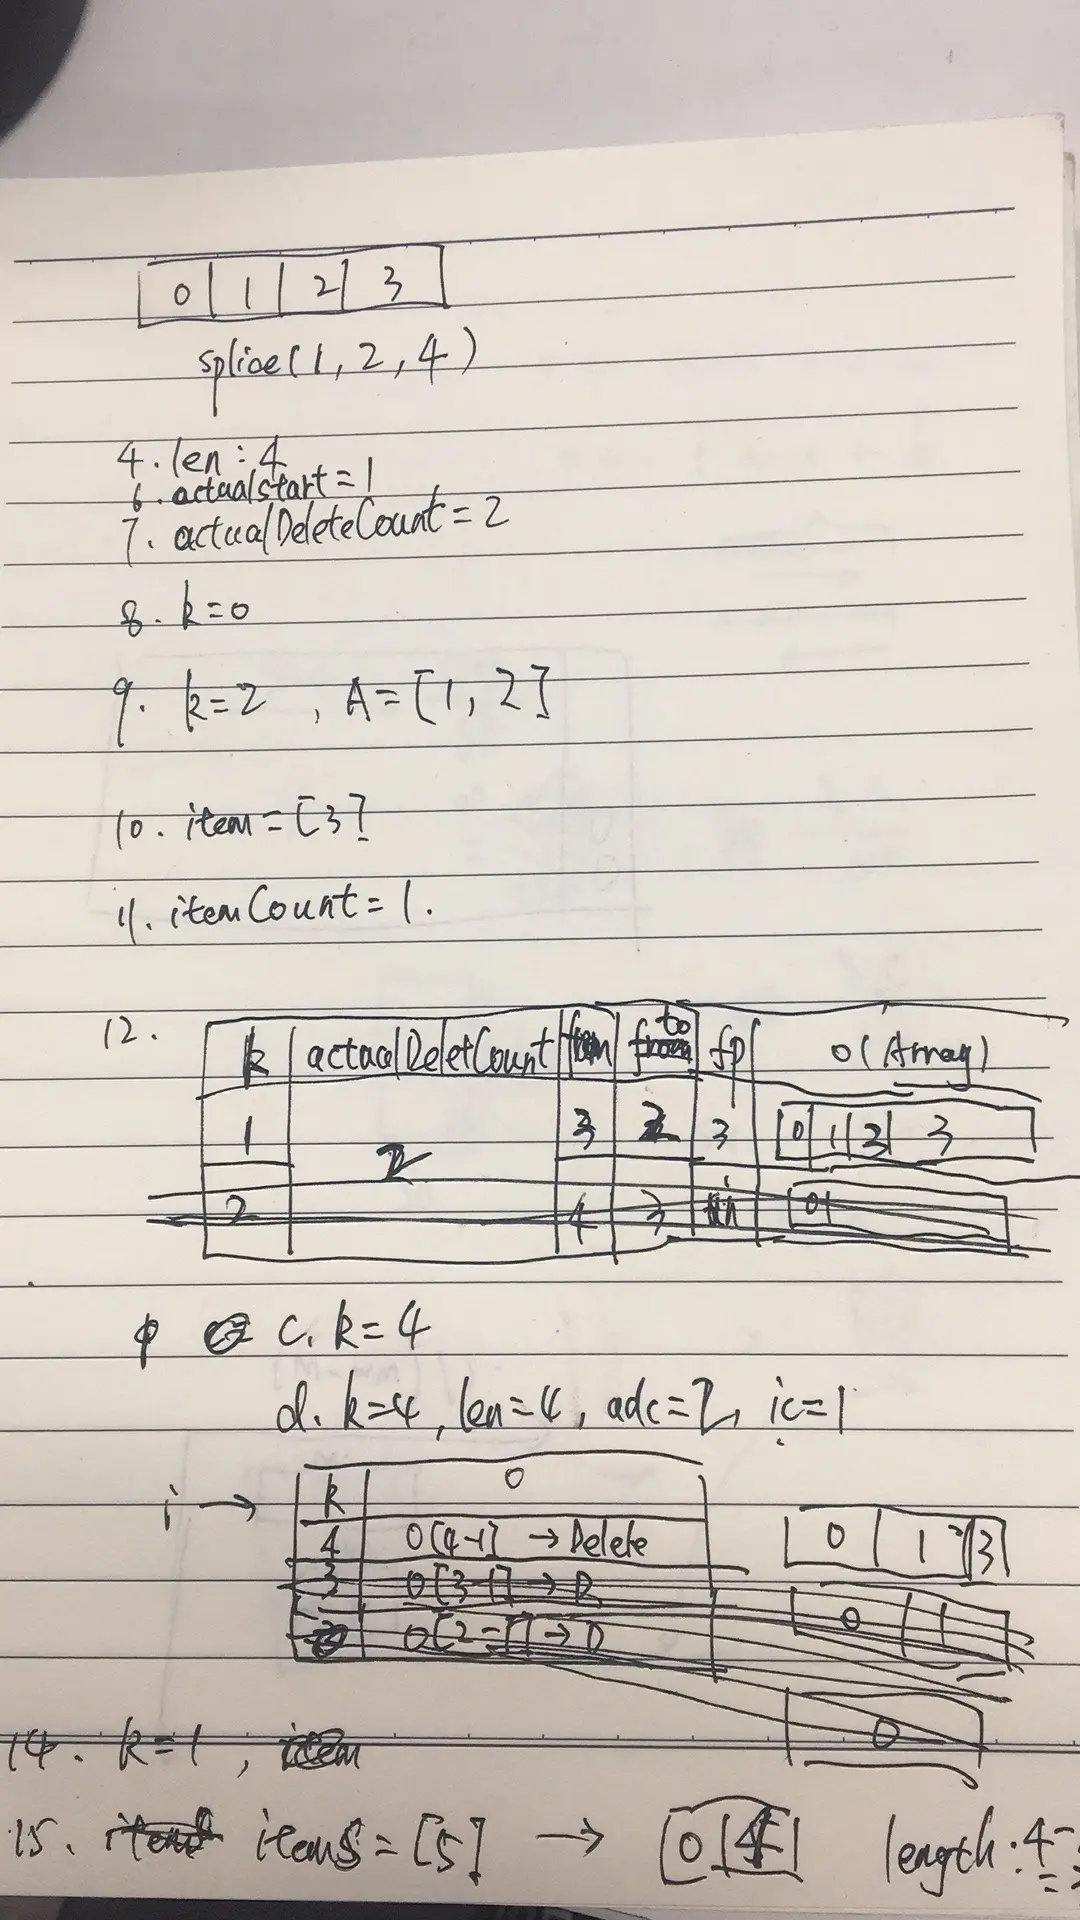 0 1 2 3
splice(1, 2, 4)
4. len: 4
6. actualstart = 1
7. actualDeleteCount = 2
8. k=0
9. k=2 , A=[1, 2]
10. item = [3]
11. itemCount = 1.
12. k actualDeletCount from to fp O(Array)
1 2 3 2 3 0 1 2 3
2 4 3 0
c. k=4
d. k=4, len=4, adc=2, ic=1
i → k O
4 O[4-1] → Delete 0 1 3
3 O[3-1] → D 0 1
O[2-1] → D
0
14. k=1 , item
15. items = [5] → 0 4 length: 4